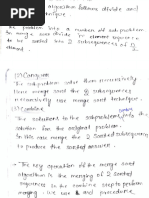 algorithm follows divide and
technique
The problem into a number of sub problem
In merge sort divide element sequence
to be sorted into 2 subsequences of n/2
(2) Conquer
The subproblem solve them recursively
here merge sort the 2 subsequences
recursively use merge sort technique
(3) Combine
The solutions to the subproblems into the
solution for the original problem
In this we merge 2 sorted sequences to
produce the sorted answer.
The key operation of the merge sort
algorithm is the merging of 2 sorted
sequences in the combine step to perform
merging, we use procedure